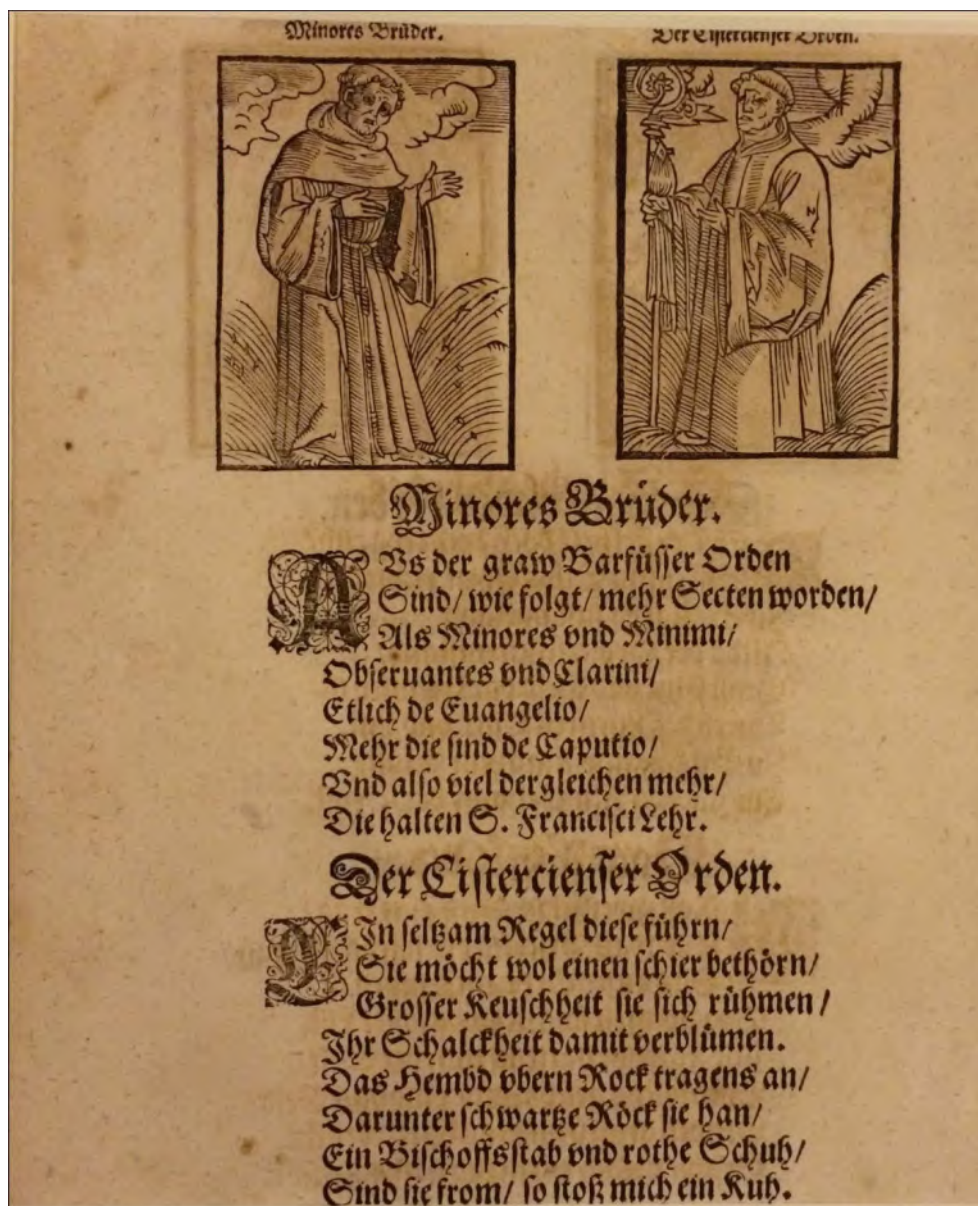 Minores Brüder.
Der Cistercienser Orden.
Minores Brüder.
AVs der graw Barfüsser Orden
Sind/ wie folgt/ mehr Secten worden/
Als Minores vnd Minimi/
Obseruantes vnd Clarini/
Etlich de Euangelio/
Mehr die sind de Caputio/
Vnd also viel dergleichen mehr/
Die halten S. Francisci Lehr.
Der Cistercienser Orden.
EIn seltzam Regel diese führn/
Sie möcht wol einen schier bethörn/
Grosser Keuschheit sie sich rühmen/
Ihr Schalckheit damit verblümen.
Das Hembd vbern Rock tragens an/
Darunter schwartze Röck sie han/
Ein Bischoffsstab vnd rothe Schuh/
Sind sie from/ so stoß mich ein Kuh.